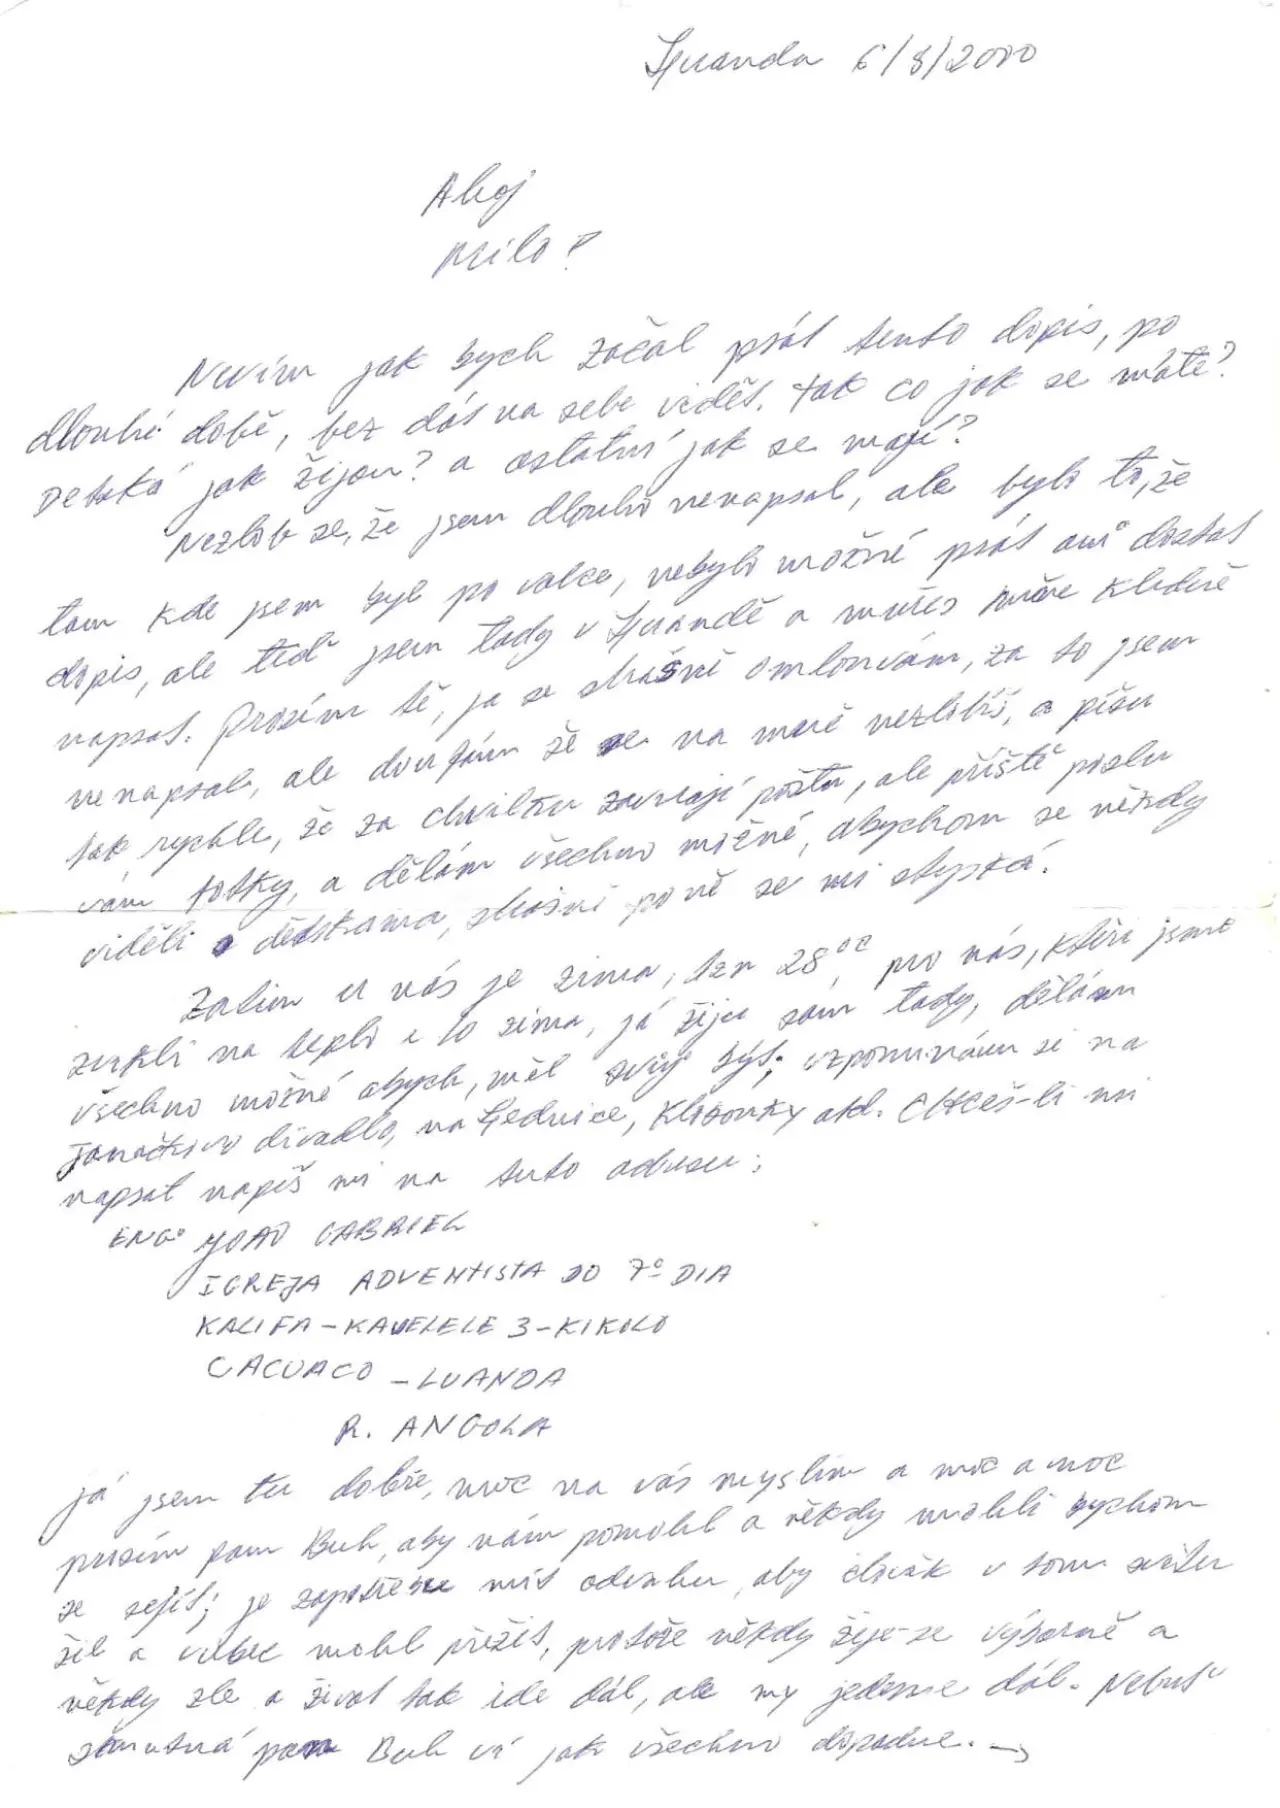 Luanda 6/8/2000
Ahoj
Milo?
Nevím jak bych začal psát tento dopis, po
dlouhé době, bez dát na sebe vědět. tak co jak se máte?
Detská jak žijou? a ostatní jak se mají?
Nezlob se, že jsem dlouho nenapsal, ale bylo to, že
tam kde jsem byl po válce, nebylo možné psát ani dostat
dopis, ale teď jsem tady v Luandě a můžeš míře klidně
napsat. Prosím tě, ja se strašně omlouvám, za to jsem
nenapsal, ale doufám že se na mně nezlobíš, a píšu
tak rychle, že za chvilku zavírají poštu, ale příště pošlu
vám fotky, a dělám všechno možné, abychom se někdy
viděli s dětskama, strašně po ně se mi stýská.
Zatím u nás je zima, tzn 28°C, pro nás, kteří jsme
zvykli na teplo e to zima, já žiju sám tady, dělám
všechno možné abych, měl svůj byt; vzpomínám si na
Janáčkovo divadlo, na Lednice, Klizonky atd. Chceš-li mi
napsat napiš mi na tuto adresu:
ENGº JOAO GABRIEL
IGREJA ADVENTISTA DO 7º DIA
KALIFA-KAWELELE 3-KIKOLO
CACUACO -LUANDA
R. ANGOLA
já jsem tu dobře, moc na vás myslím a moc a moc
prosím pam Buh, aby nám pomohl a někdy mohli bychom
se sejít; je zapotřebu mít odvahu, aby člověk v tom světu
žil a vubec mohl přežít, protože někdy žije-se výborně a
někdy zle a život tak ide dál, ale my jedeme dál. Nebuť
smutná pan Buh ví jak všechno dopadne. →